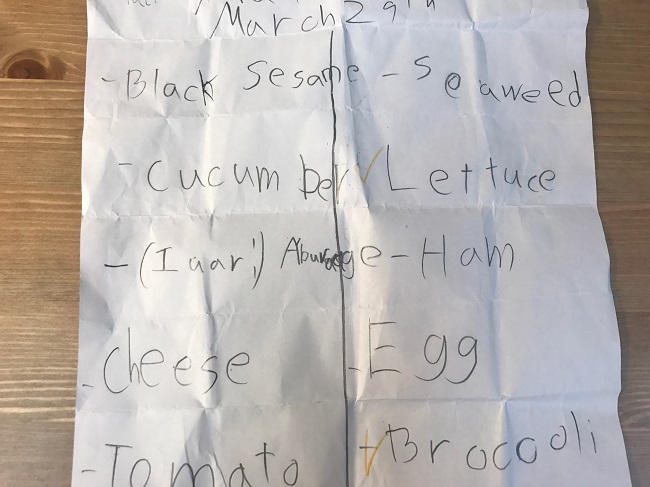 March 29th
- Black Sesame - Seaweed
- Cucumber ✓ Lettuce
- (Iaari) Aburage - Ham
- Cheese - Egg
- Tomato - Broccoli